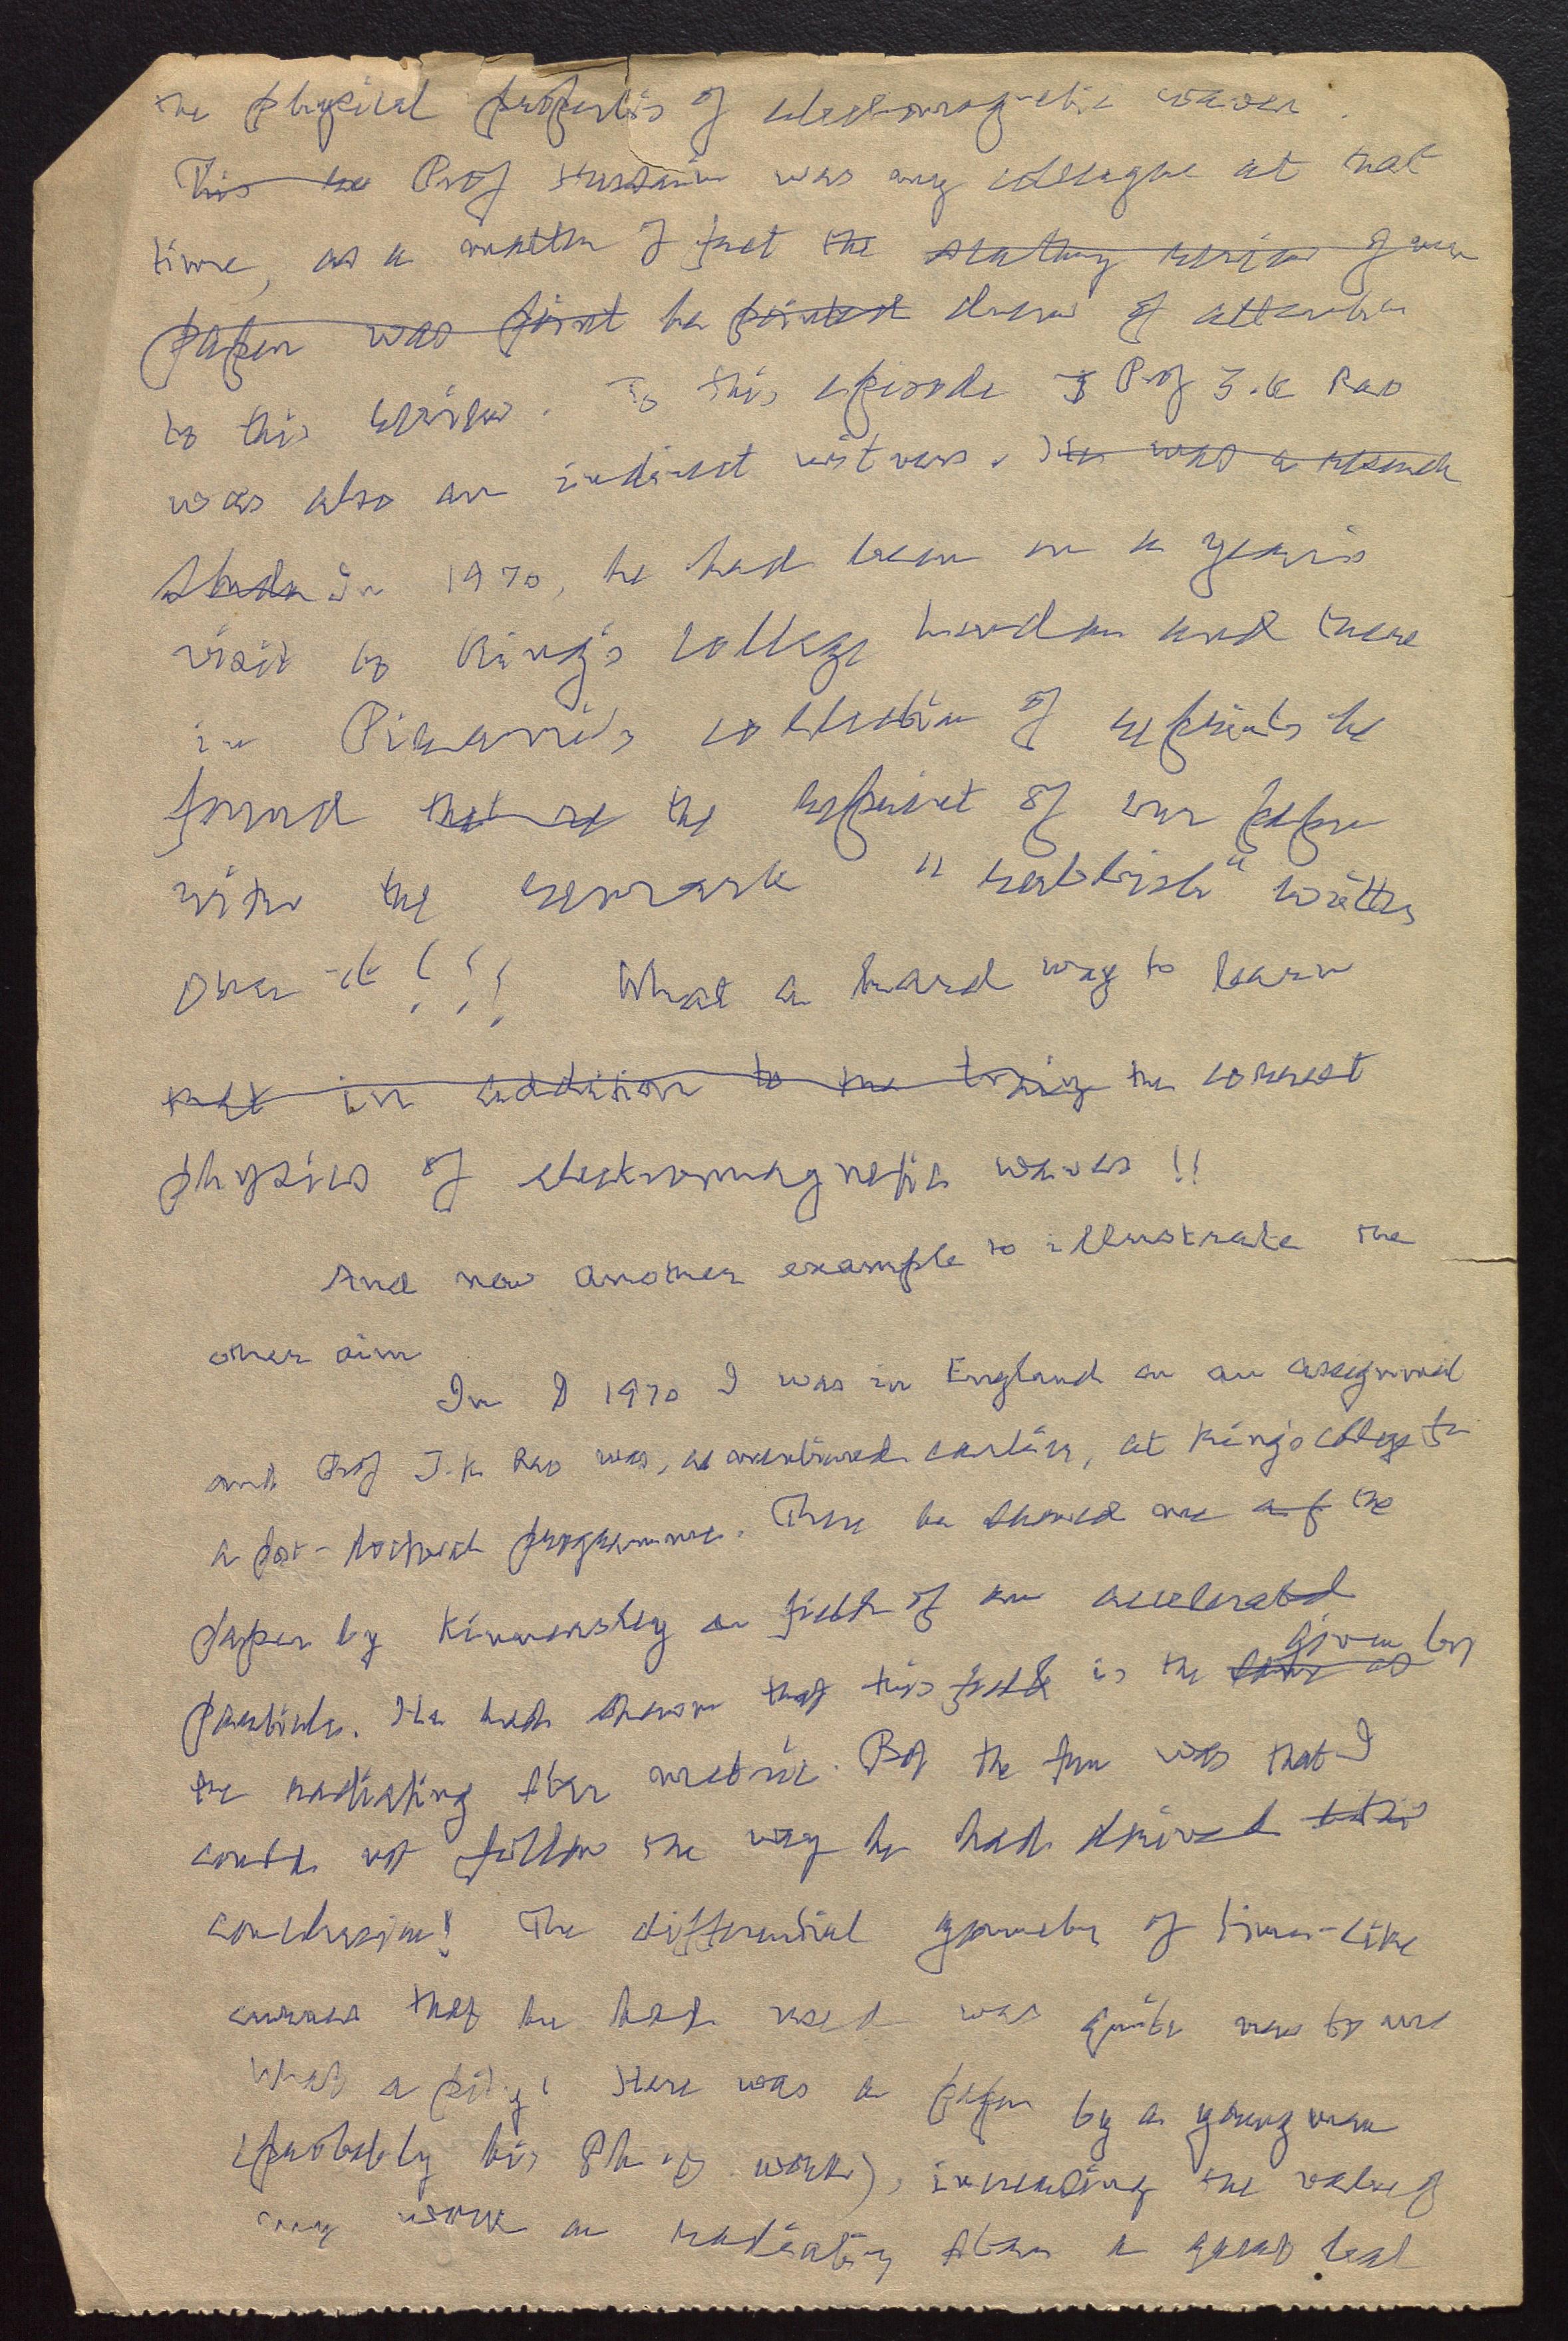 the physical properties of electromagnetic waves.
This was Prof Hussain was my colleague at that
time, as a matter of fact the scathing review of our
paper was point he pointed drew my attention
to this review. To this episode I Prof J.K Rao
was also an indirect witness. He was a research
Stude In 1970, he had been on a year's
visit to King's College London and there
in Pirani's collection of reprints he
found that the the reprint of our paper
with the remark "rubbish" written
over it!!! What a hard way to learn
that in addition to the the correct
physics of electromagnetic waves!!
And now another example to illustrate the
other aim
In 1970 I was in England on an assignment
and Prof J.K Rao was, as mentioned earlier, at King's College for
a post-doctoral programme. There he showed me a p the
paper by Kinnersley on field of an accelerated
particle. He had shown that this field is the same as given by
the radiating star metric. But the fun was that I
could not follow the way he had derived this
conclusion! The differential geometry of time-like
curves that he had used was quite new to me
What a pity! Here was a paper by a young man
(probably his Ph.D. work), increasing the value of
my work on radiating stars a great deal